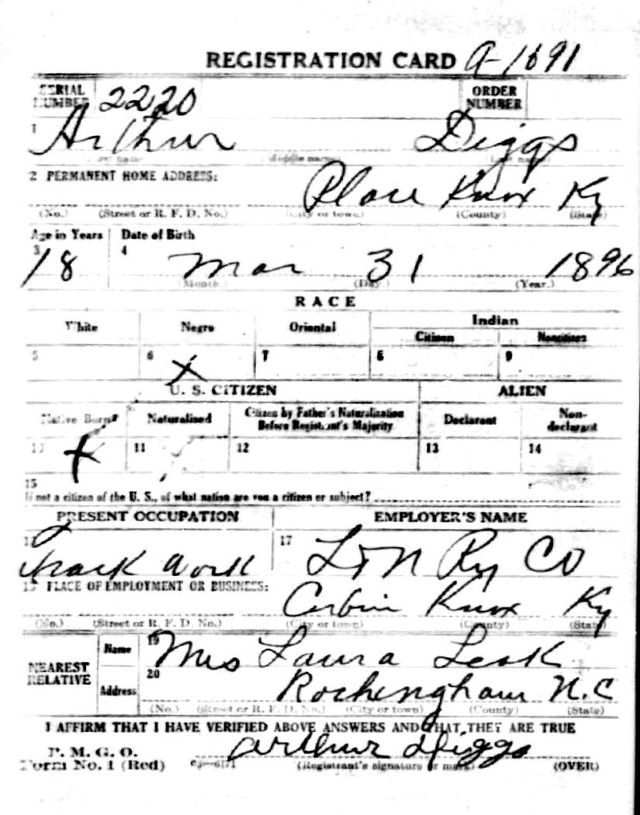 REGISTRATION CARD A-1691
SERIAL NUMBER 2220 ORDER NUMBER
1 Arthur Diggs
(First name) (Middle name) (Last name)
2 PERMANENT HOME ADDRESS:
Place Knox Ky
(No.) (Street or R. F. D. No.) (City or town) (County) (State)
Age in Years Date of Birth
3 4
18 Mar 31 1896
(Month) (Day) (Year.)
RACE
White Negro Oriental Indian
Citizen Noncitizen
5 6 X 7 8 9
U. S. CITIZEN ALIEN
Native Born Naturalized Citizen by Father's Naturalization Before Registrant's Majority Declarant Non-declarant
10 X 11 12 13 14
15
If not a citizen of the U. S., of what nation are you a citizen or subject?
PRESENT OCCUPATION EMPLOYER'S NAME
Track Work 17 L & N Ry Co
PLACE OF EMPLOYMENT OR BUSINESS:
Corbin Knox Ky
(No.) (Street or R. F. D. No.) (City or town) (County) (State)
NEAREST RELATIVE
Name 19 Mrs Laura Leak
Address 20 Rockengham N.C
(No.) (Street or R. F. D. No.) (City or town) (County) (State)
I AFFIRM THAT I HAVE VERIFIED ABOVE ANSWERS AND THAT THEY ARE TRUE
P. M. G. O.
Form No. 1 (Red) Arthur Diggs
(Registrant's signature or mark) (OVER)